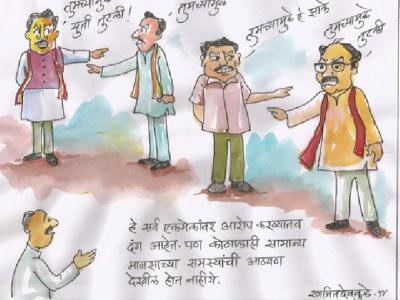 तुमच्यामुळे
युती तुटली!
तुमच्यामुळे
तुमच्यामुळे हे झाले
तुमच्यामुळे
तुटली
हे सर्व एकमेकांवर आरोप करण्यातच
दंग आहेत. पण कोणालाही सामान्य
माणसाच्या समस्यांची आठवण
देखील होत नाहीये.